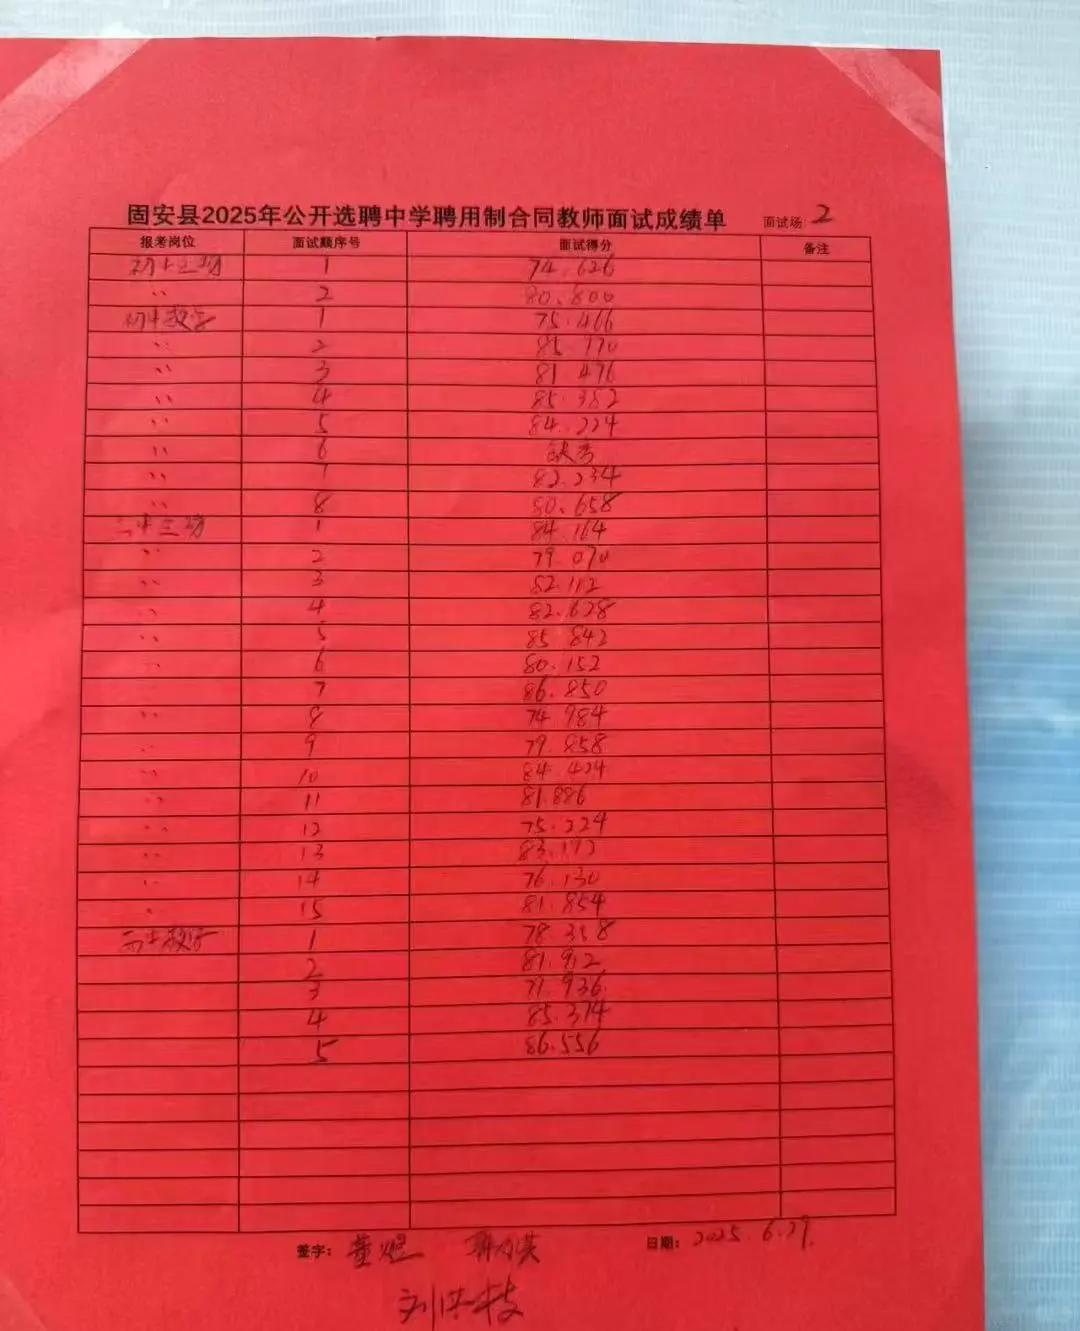 固安县2025年公开选聘中学聘用制合同教师面试成绩单 面试场: 2
报考岗位 面试顺序号 面试得分 备注
初中 1 74.626
〃 2 80.800
初中数学 1 75.466
〃 2 85.770
〃 3 81.476
〃 4 85.382
〃 5 84.224
〃 6 缺考
〃 7 82.234
〃 8 80.658
1 84.164
〃 2 79.070
〃 3 82.112
〃 4 82.628
〃 5 85.842
〃 6 80.152
〃 7 86.850
〃 8 74.984
〃 9 79.858
〃 10 84.424
〃 11 81.886
〃 12 75.224
〃 13 83.172
〃 14 76.130
〃 15 81.854
高中数学 1 78.358
2 81.912
3 77.936
4 85.374
5 86.556
签字: 董 日期: 2025.6.29.
刘洪枝